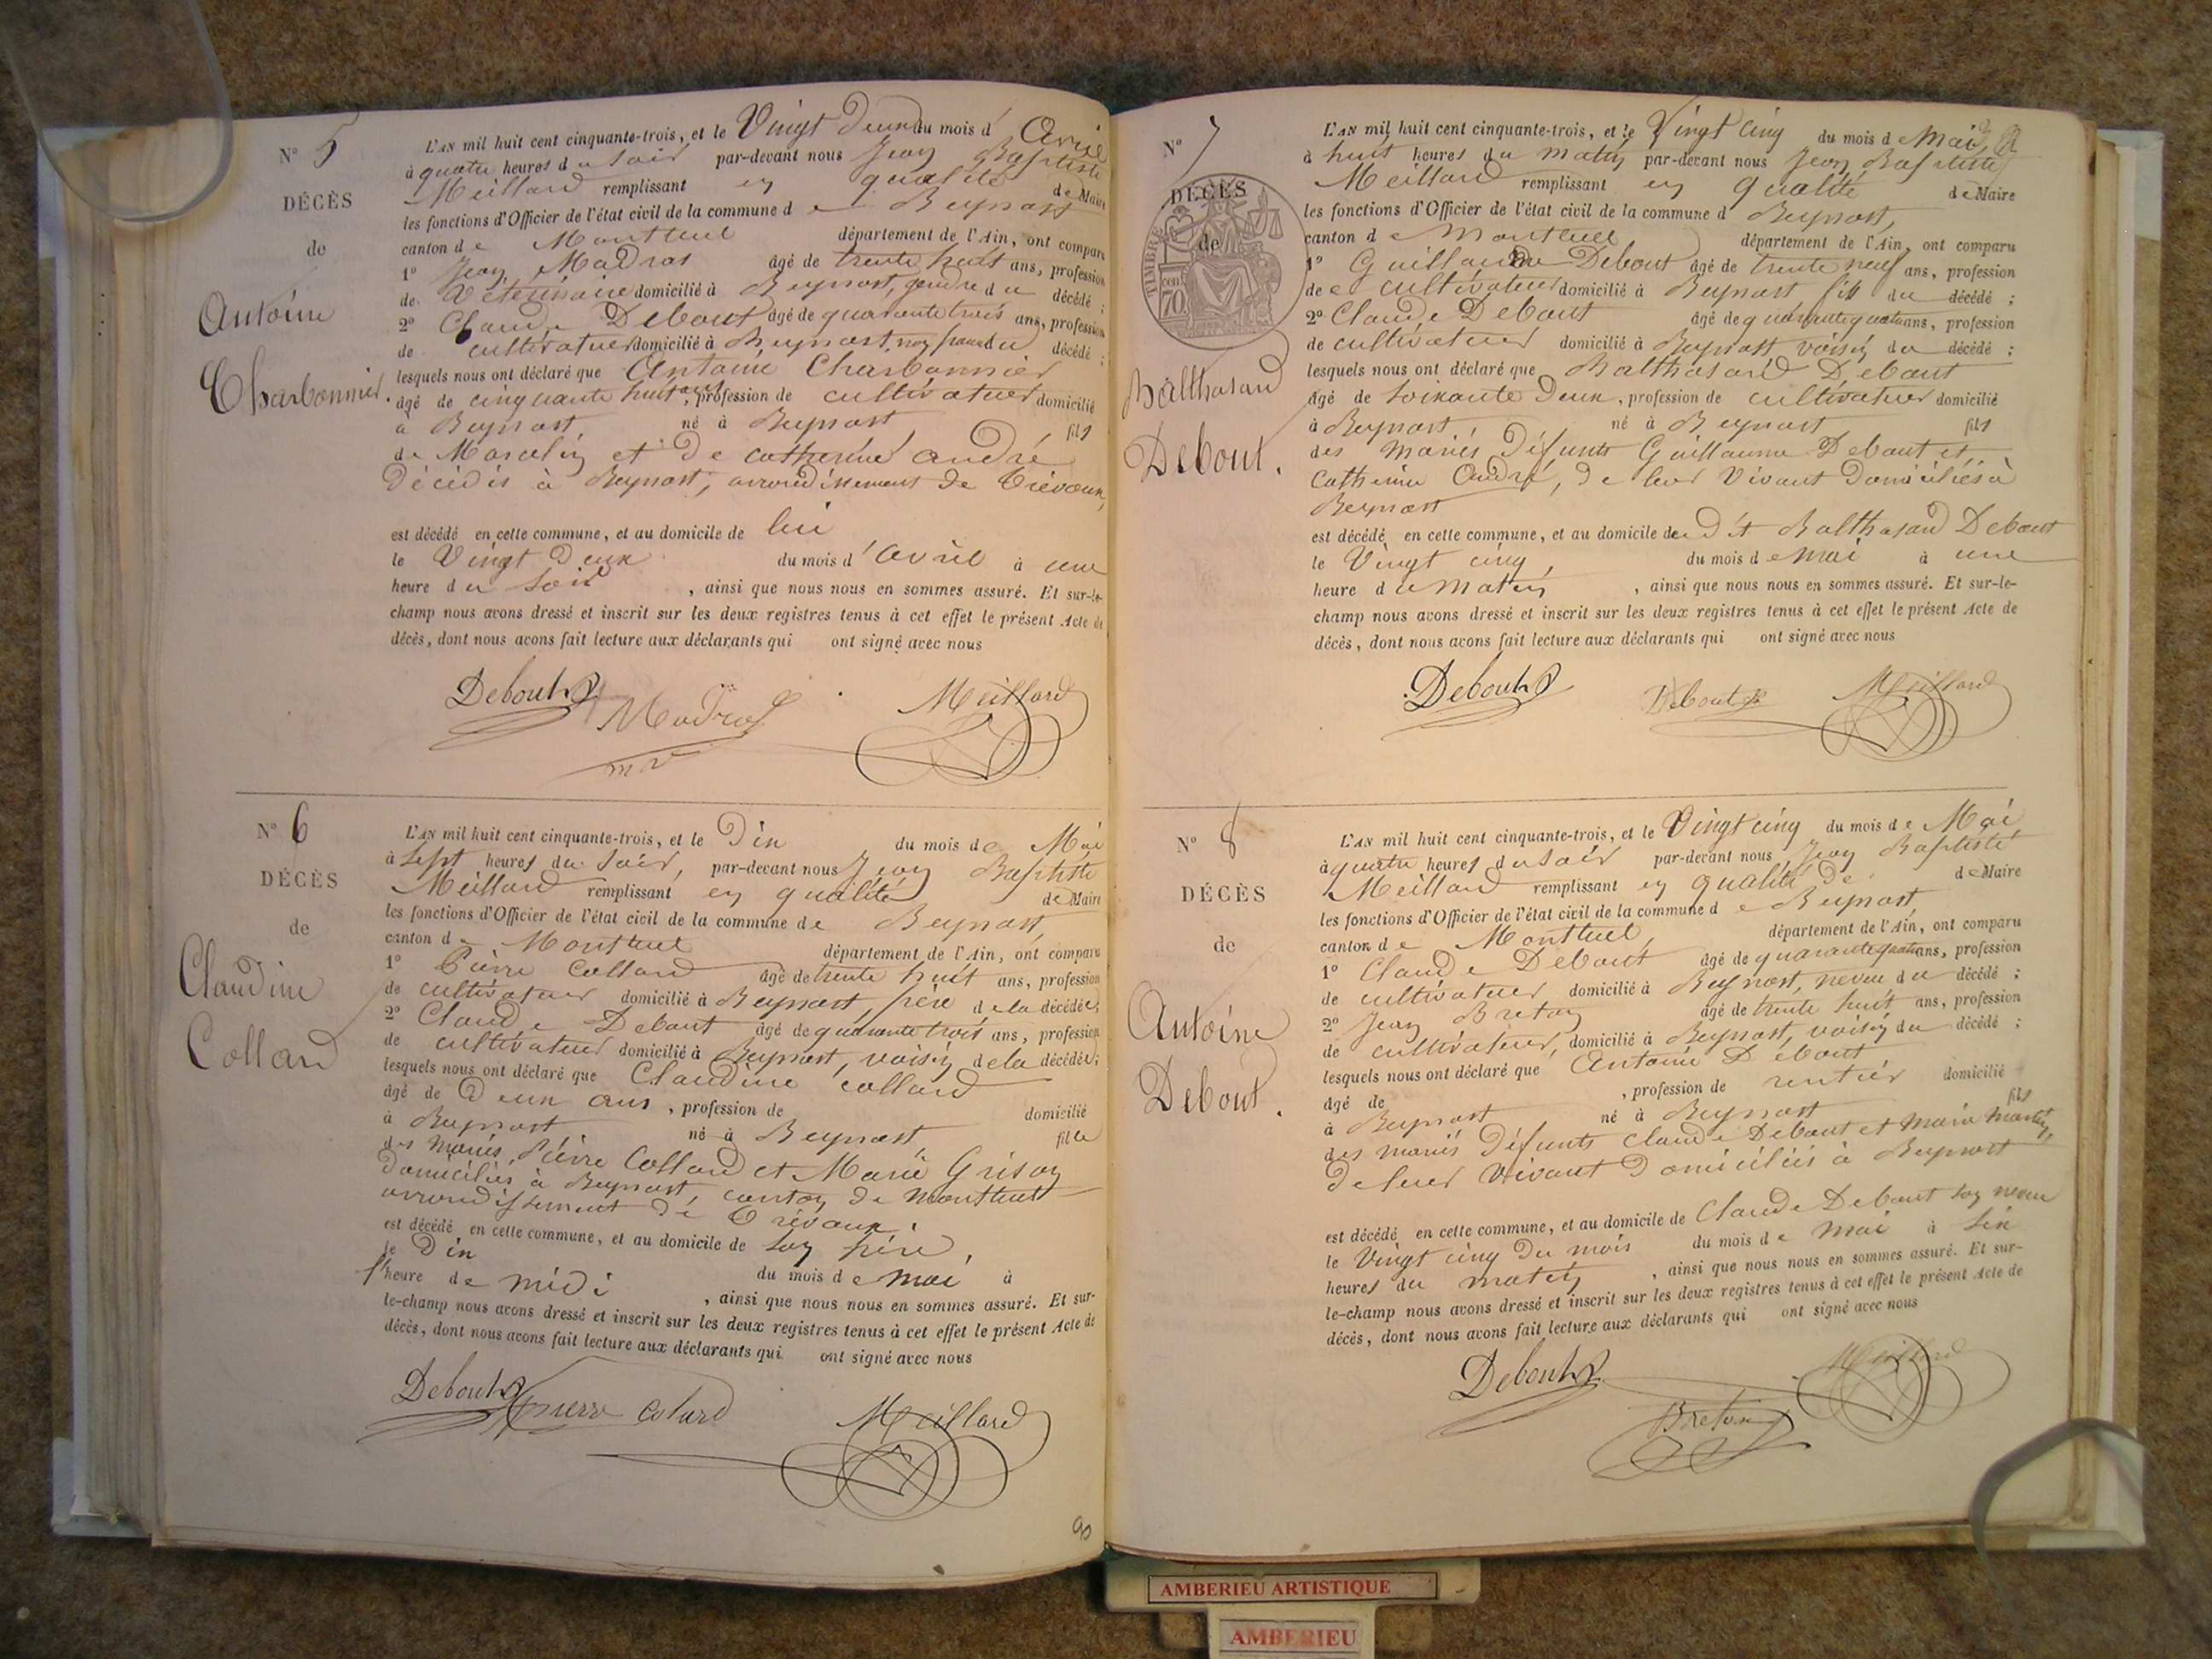 N° 5
DÉCÈS
de
Antoine
Charbonnier.
L'AN mil huit cent cinquante-trois, et le Vingt Deux du mois d'Avril
à quatre heures du soir par-devant nous Jean Baptiste
Meillard remplissant en qualité de Maire
les fonctions d'Officier de l'état civil de la commune de Beynost
canton de Montluel département de l'Ain, ont comparu
1° Jean Madras âgé de trente huit ans, profession
de Vétérinaire domicilié à Beynost, gendre du décédé ;
2° Claude Debout âgé de quarante trois ans, profession
de cultivateur domicilié à Beynost, du décédé ;
lesquels nous ont déclaré que Antoine Charbonnier
âgé de cinquante huit ans, profession de cultivateur domicilié
à Beynost, né à Beynost, fils
de Marcelin et de catherine andré
Décédés à Beynost, arrondissement de Trévoux,
est décédé en cette commune, et au domicile de lui
le Vingt Deux du mois d'avril à une
heure du soir, ainsi que nous nous en sommes assuré. Et sur-le-
champ nous avons dressé et inscrit sur les deux registres tenus à cet effet le présent Acte de
décès, dont nous avons fait lecture aux déclarants qui ont signé avec nous
Debout Madras Meillard
mv
N° 6
DÉCÈS
de
Claudine
Collard
L'AN mil huit cent cinquante-trois, et le Dix du mois de Mai
à Sept heures du Soir, par-devant nous Jean Baptiste
Meillard remplissant en qualité de Maire
les fonctions d'Officier de l'état civil de la commune de Beynost,
canton de Montluel département de l'Ain, ont comparu
1° Pierre Collard âgé de trente huit ans, profession
de cultivateur domicilié à Beynost père de la décédée;
2° Claude Debout âgé de quarante trois ans, profession
de cultivateur domicilié à Beynost, voisin de la décédée;
lesquels nous ont déclaré que Claudine collard
âgé de Deux ans, profession de domicilié
à Beynost né à Beynost, fille
des mariés Pierre Collard et Marie Grison
Domiciliés à Beynost, canton de Montluel
arrondissement de Trévoux.
est décédé en cette commune, et au domicile de son père,
le Dix du mois de mai à
l'heure de midi, ainsi que nous nous en sommes assuré. Et sur-
le-champ nous avons dressé et inscrit sur les deux registres tenus à cet effet le présent Acte de
décès, dont nous avons fait lecture aux déclarants qui ont signé avec nous
Debout pierre Colard Meillard
90
N° 7
DÉCÈS
de
TIMBRE
70
Balthasard
Debout.
L'AN mil huit cent cinquante-trois, et le Vingt cinq du mois de Mai
à huit heures du matin par-devant nous Jean Baptiste
Meillard remplissant en qualité de Maire
les fonctions d'Officier de l'état civil de la commune d Beynost,
canton de Montluel département de l'Ain, ont comparu
1° Guillaume Debout âgé de trente neuf ans, profession
de cultivateur domicilié à Beynost, fils du décédé ;
2° Claude Debout âgé de quarante quatre ans, profession
de cultivateur domicilié à Beynost voisin du décédé ;
lesquels nous ont déclaré que Balthasard Debout
âgé de soixante Deux, profession de cultivateur domicilié
à Beynost, né à Beynost fils
des mariés Défunts Guillaume Debout et
Catherine André, de leur Vivant Domiciliés à
Beynost
est décédé en cette commune, et au domicile du dit Balthasard Debout
le Vingt cinq, du mois de mai à une
heure du matin, ainsi que nous nous en sommes assuré. Et sur-le-
champ nous avons dressé et inscrit sur les deux registres tenus à cet effet le présent Acte de
décès, dont nous avons fait lecture aux déclarants qui ont signé avec nous
Debout Debout Meillard
N° 8
DÉCÈS
de
Antoine
Debout.
L'AN mil huit cent cinquante-trois, et le Vingt cinq du mois de Mai
à quatre heures du soir par-devant nous Jean Baptiste
Meillard remplissant en qualité de de Maire
les fonctions d'Officier de l'état civil de la commune de Beynost
canton de Montluel, département de l'Ain, ont comparu
1° Claude Debout âgé de quarante quatre ans, profession
de cultivateur domicilié à Beynost, neveu du décédé ;
2° Jean Breton âgé de trente huit ans, profession
de cultivateur, domicilié à Beynost, voisin du décédé ;
lesquels nous ont déclaré que Antoine Debout
âgé de , profession de rentier domicilié
à Beynost né à Beynost fils
des mariés Défunts Claude Debout et Marie Martin,
de leur Vivant Domiciliés à Beynost
est décédé en cette commune, et au domicile de Claude Debout son neveu
le Vingt cinq du mois du mois de mai à six
heures du matin, ainsi que nous nous en sommes assuré. Et sur-
le-champ nous avons dressé et inscrit sur les deux registres tenus à cet effet le présent Acte de
décès, dont nous avons fait lecture aux déclarants qui ont signé avec nous
Debout Breton Meillard
AMBERIEU ARTISTIQUE
AMBERIEU